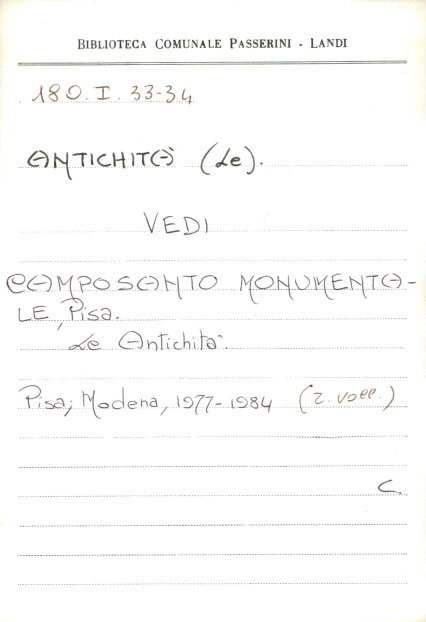 BIBLIOTECA COMUNALE PASSERINI - LANDI
180.I.33-34
ANTICHITÀ (Le).
VEDI
CAMPOSANTO MONUMENTA-
LE, Pisa.
Le Antichità.
Pisa; Modena, 1977-1984 (2. voll.)
C